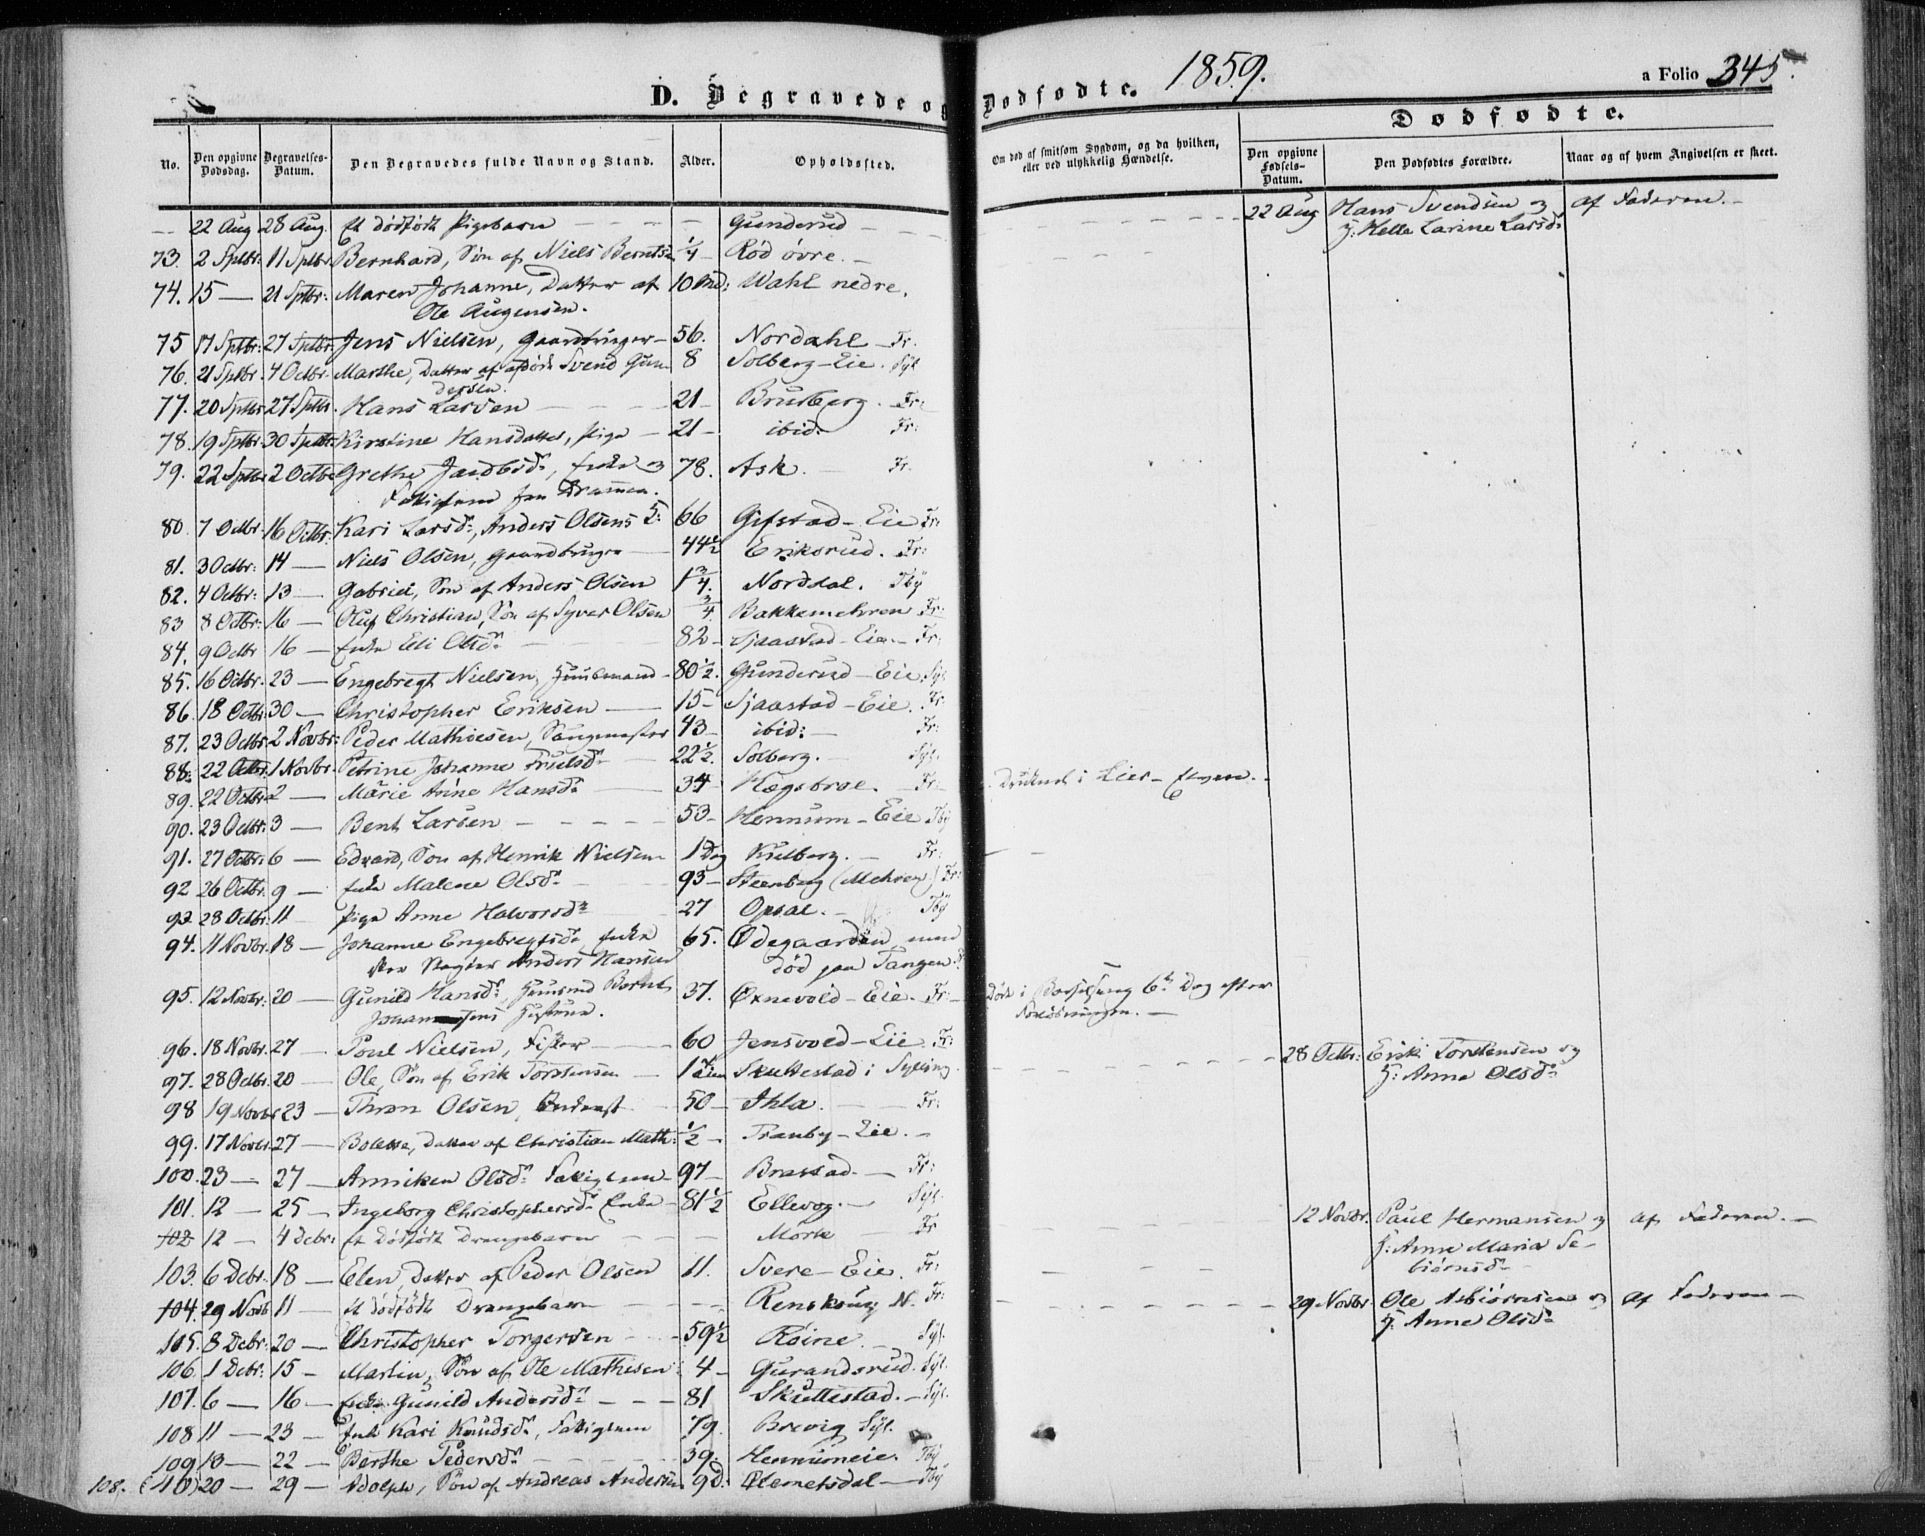 D. Begravede og Dødfødte. 1859. a Folio 345.
Dødfødte.
No. Den opgivne Dødsdag. Begravelses-Datum. Den Begravedes fulde Navn og Stand. Alder. Opholdssted. Om død af smitsom Sygdom, og da hvilken, eller ved ulykkelig Hændelse. Den opgivne Fødsels-Datum. Den Dødfødtes Forældre. Naar og af hvem Angivelsen er skeet.
22 Aug 28 Aug. Et dødfødt Pigebarn Gunderud 22 Aug Hans Svendsen og af Faderen.
H: Helle Larine Larsd:
73. 2 Sptbr: 11 Sptbr. Bernhard, Søn af Niels Berntsn 1/4 Rød øvre.
74. 15 — 21 Sptbr: Maren Johanne, Datter af 10 Md: Wahl nedre.
Ole Augensen.
75 17 Sptbr: 27 Sptbr. Jens Nielsen, Gaardbruger 56. Nordahl Fr.
76. 21 Sptbr. 4 Octbr. Marthe, Datter af afdøde Svend Gun- 8 Solberg-Eie. Syl
dersen.
77. 20 Sptbr 27 Sptbr. Hans Larsen 21 Brusberg. Fr:
78. 19 Sptbr. 30 Sptbr: Kirstine Hansdatter, Pige 21 ibid: Fr:
79. 22 Sptbr 2 Octbr Grethe Jacobsd:, Enke og 78. Ask. Fr.
Fattiglem fra Drammen.
80. 7 Octbr. 16 Octbr. Kari Larsd:, Anders Olsens H: 66 Gifstad-Eie Fr:
81. 3 Octbr: 14 — Niels Olsen, Gaardbruger 44 1/2 Eriksrud. Fr:
82. 4 Octbr: 13 — Gabriel, Søn af Anders Olsen 1 3/4. Norddal. Tby
83 8 Octbr: 16 — Oluf Christian, Søn af Syver Olsen 3/4. Bakkemehren Fr:
84. 9 Octbr 16 — Enke Eli Olsd: 82 Sjaastad-Eie. Fr:
85. 16 Octbr. 23 — Engebregt Nielsen, Huusmand 80 1/2. Gunderud-Eie Syl.
86. 18 Octbr 30 — Christopher Eriksen 15 Sjaastad-Eie. Fr.
87. 23 Octbr. 2 Novbr: Peder Mathiesen, Saugmester 43 ibid: Fr:
88. 22 Octbr. 1 Novbr. Petrine Johanne Truelsd: 22 1/2. Solberg. Syl.
89. 22 Octbr 2 — Marie Trine Hansd: 34 Hægsbroe. Fr: Druknet i Lier-Elven.
90. 23 Octbr. 3 — Bent Larsen 53 Hennum-Eie Tby
91. 27 Octbr: 6 — Edvard, Søn af Henrik Nielsen 1 Dag Kielberg. Fr:
92 26 Octbr. 9 — Enke Malene Olsd: 93 Steenberg (Mehren) Fr:
93 28 Octbr. 11 — Pige Anne Halvorsd: 27 Opsal. Tby
94. 11 Novbr. 18 — Johanne Engebregtsd:, Enke 65. Ødegaarden, men
efter Slagter Anders Hansen død paa Tangen
95. 12 Novbr. 20 — Gunild Hansd:, Huusmd Bernt 37. Oxnevold-Eie. Fr: Død i Barselseng 6te Dag efter
Johannesens Hustrue. Forløsningen.
96. 18 Novbr. 27 — Poul Nielsen, Fisker 60 Jensvold-Eie Fr:
97. 28 Octbr. 20 — Ole, Søn af Erik Torstensen 1 Time Skuttestad i Sylling. 28 Octbr: Erik Torstensen og
H: Anne Olsd:
98 19 Novbr 23 — Thron Olsen, 50 Ihla. Fr:
99. 17 Novbr. 27 — Bolette, Datter af Christian Math: 1/2 Tranby-Eie.
100. 23 — 27 — Anniken Olsd: Fattiglem 97 Brastad. Fr:
101. 12 — 25 — Ingeborg Christophersd: Enke 81 1/2 Ellevog. Syl.
102 12 — 4 Debr: Et dødfødt Drengebarn Mørk Fr 12 Novbr. Paul Hermansen og af Faderen.
H: Anne Maria Se-
biørnsd:
103. 6 Debr: 18 — Elen, Datter af Peder Olsen 11. Svere-Eie. Fr:
104. 29 Novb 11 — et dødfødt Drengebarn Renskoug N. Fr: 29 Novbr Ole Asbiørnsen og af Faderen
H: Anne Olsd:
105. 8 Debr: 20 — Christopher Torgersen 59 1/2 Røine. Syl.
106. 1 Debr: 15 — Martin, Søn af Ole Mathisen 4 Gurandsrud. Syl.
107. 6 — 16 — Enke Gunild Andersd: 81 Skuttestad. Syl.
108 11 — 23 — Enke Kari Knudsd:, Fattiglem 79. Brevig Syl.
109 13 — 22 — Berthe Pedersd: 39. Hennumeie. Tby
108. (110) 20 — 29 — Adolph, Søn af Andreas Andersen 9 D: Clemetsdal Tby